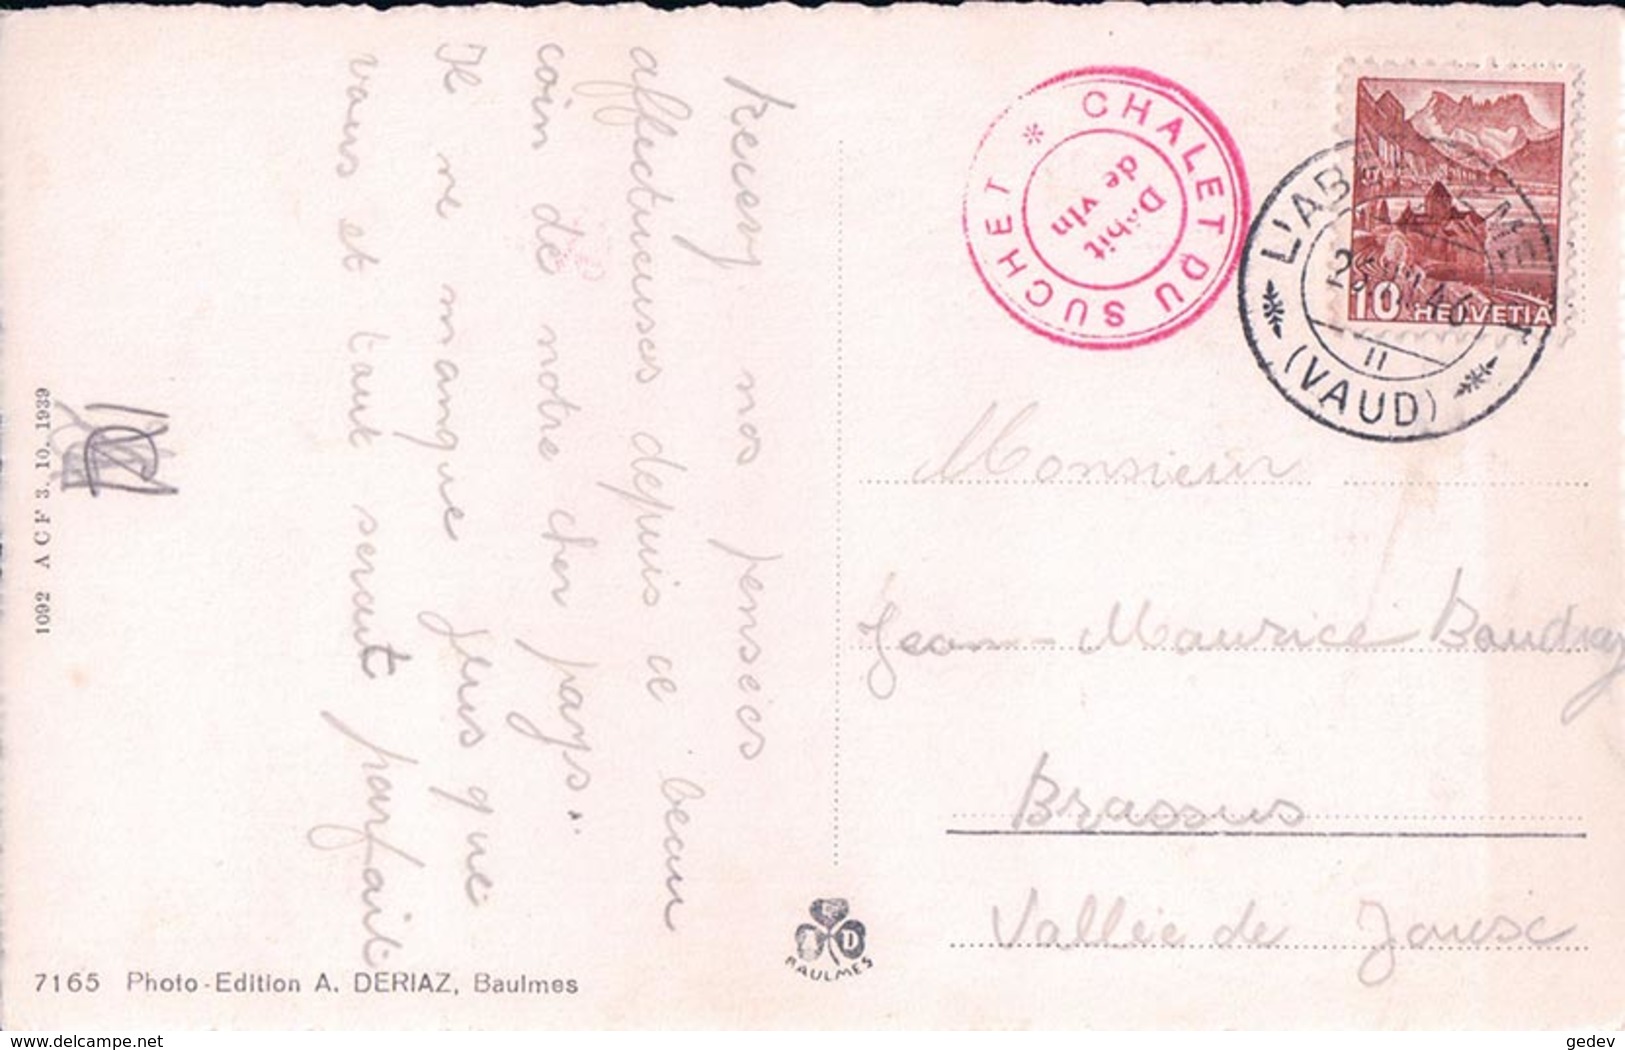 Recevez nos pensées
affectueuses depuis ce beau
coin de notre cher pays.
Il ne manque plus que
vous et tout serait parfait
CHALET DU SUCHET *
Débit
de vin
L'AB ME
25 46
11
(VAUD)
10 HELVETIA
Monsieur
Jean-Maurice Baudraz
Brassus
Vallée de Joux
1092 A C F 3. 10. 1939
D
BAULMES
7165 Photo-Edition A. DERIAZ, Baulmes
delcampe.net
gedev